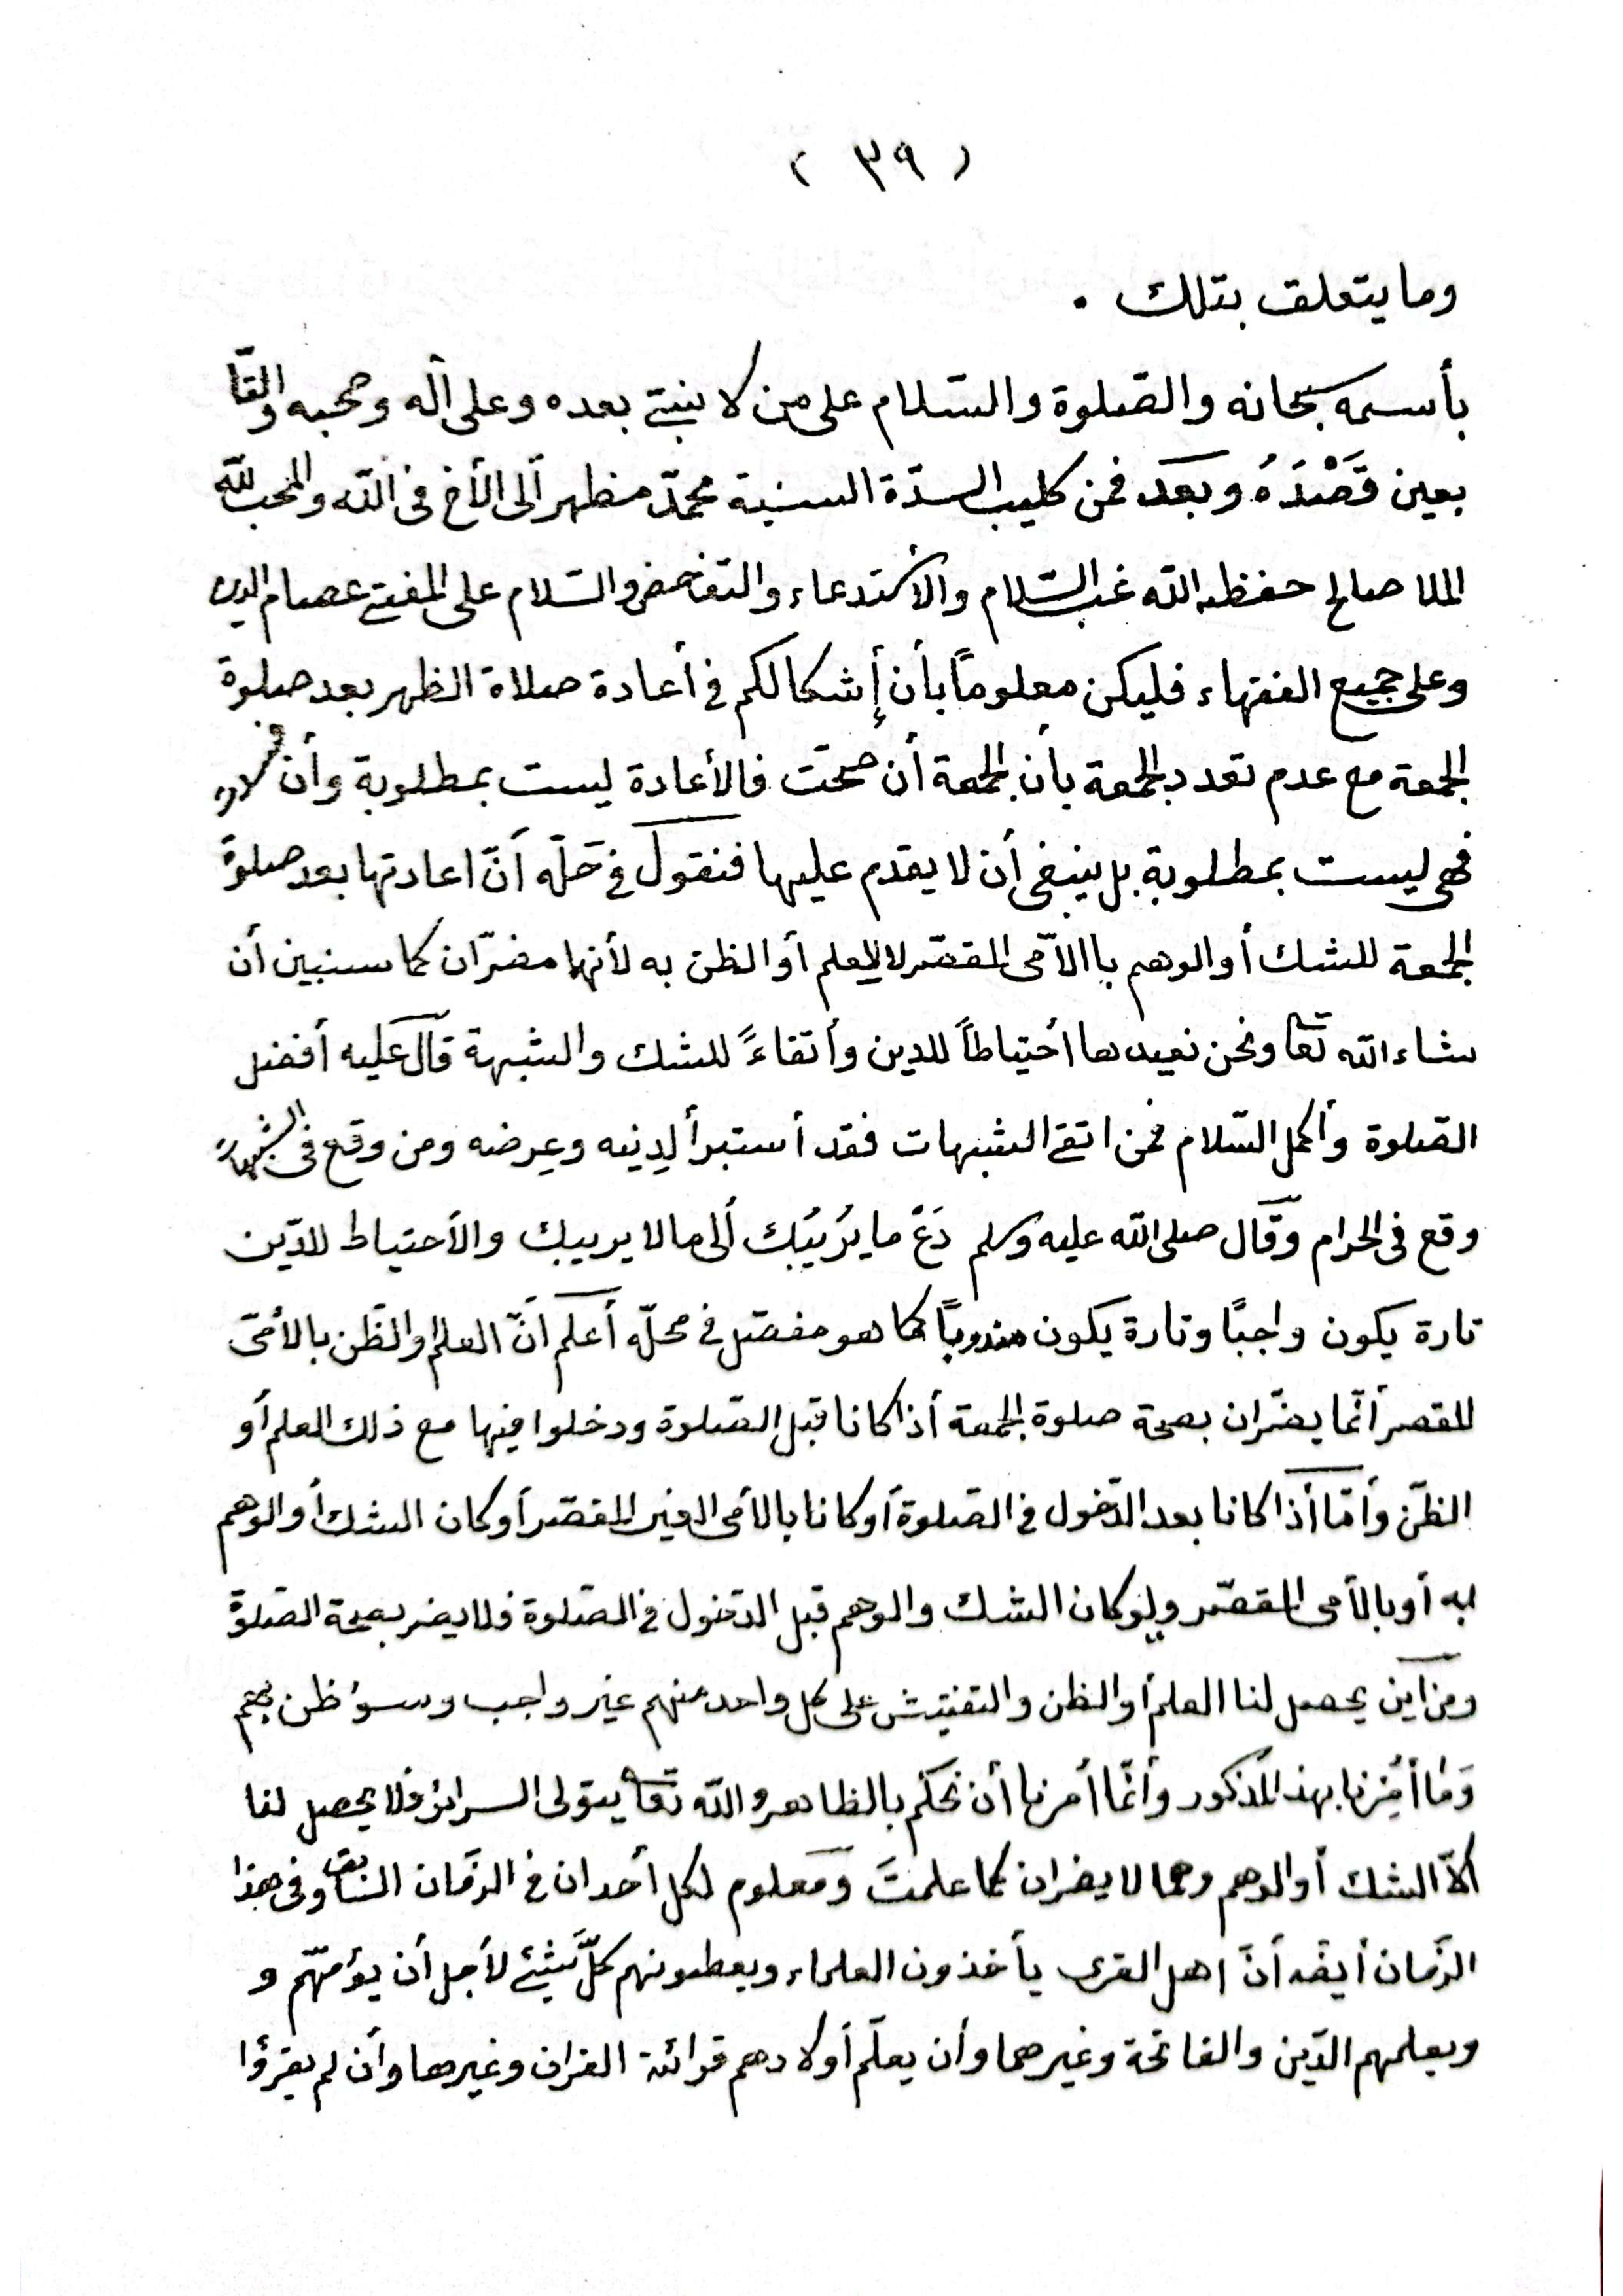 ( ٣٩ )
وما يتعلق بتلك .
بأسمه سبحانه والصّلوة والسّلام على من لا نبيّ بعده وعلى آله وصحبه والتّا
بعين قَصْدَهُ وبعد فمن كليب السدّة السنية محمّد مظهر ألى الأخ فى اللّه والمحب للّه
الملا صالح حفظه اللّه غب السّلام والأستدعاء والتفحص والسّلام على المفتى عصام الدين
وعلى جميع الفقهاء فليكن معلوماً بأن إشكالكم فى أعادة صلاة الظهر بعد صلوة
الجمعة مع عدم تعدد الجمعة بأن الجمعة أن صحّت فالأعادة ليست بمطلوبة وأن لا
فهى ليست بمطلوبة بل ينبغى أن لا يقدم عليها فنقول فى حَلّه أنّ اعادتها بعد صلوة
الجمعة للشك أو الوهم باالأمّى المقصّر لا للعلم أو الظن به لأنهما مضرّان كما سنبين أن
شاء اللّه تعا ونحن نعيدها أحتياطاً للدين وأتقاءً للشك والشبهة قال عليه أفضل
الصّلوة وأكمل السّلام فمن اتقى الشبهات فقد أستبرأ لِدِينه وعِرضه ومن وقع فى الشبهات
وقع فى الحرام وقال صلى اللّه عليه وسلم دَعْ ما يُرَيبُك ألى ما لا يريبك والأحتياط للدّين
تارة يكون واجبًا وتارة يكون مندوبًا كما هو مفصّل فى محلّه أعلم أنّ العلم او الظّن بالأمّى
المقصر أنّما يضرّان بصحة صلوة الجمعة أذا كانا قبل الصّلوة ودخلوا فيها مع ذلك العلم أو
الظّن وأمّا أذا كانا بعد الدّخول فى الصّلوة أو كانا بالأمى الغير المقصّر أو كان الشك أو الوهم
به أو بالأمى المقصّر ولو كان الشك والوهم قبل الدخول فى الصّلوة فلا يضر بصحة الصّلوة
ومن أين يحصل لنا العلم أو الظن والتفتيش على كل واحد منهم غير واجب وسوء ظن بهم
وَمٰا أُمِرنا بهذا المذكور وأنّما أمرنا أن نحكم بالظاهر واللّه تعا يتولى السرائر فلا يحصل لنا
ألاّ الشك أو الوهم وهما لا يضران كما علمتَ ومعلوم لكل أحد ان فى الزّمان السّابق وفى هذا
الزّمان أيضًا أنّ اهل القرى يأخذون العلماء ويعطونهم كلّ شيئ لأجل أن يؤمهّم و
ويعلمهم الدّين والفاتحة وغيرهما وأن يعلّم أولادهم قرائة القرآن وغيرها وأن لم يقرؤا